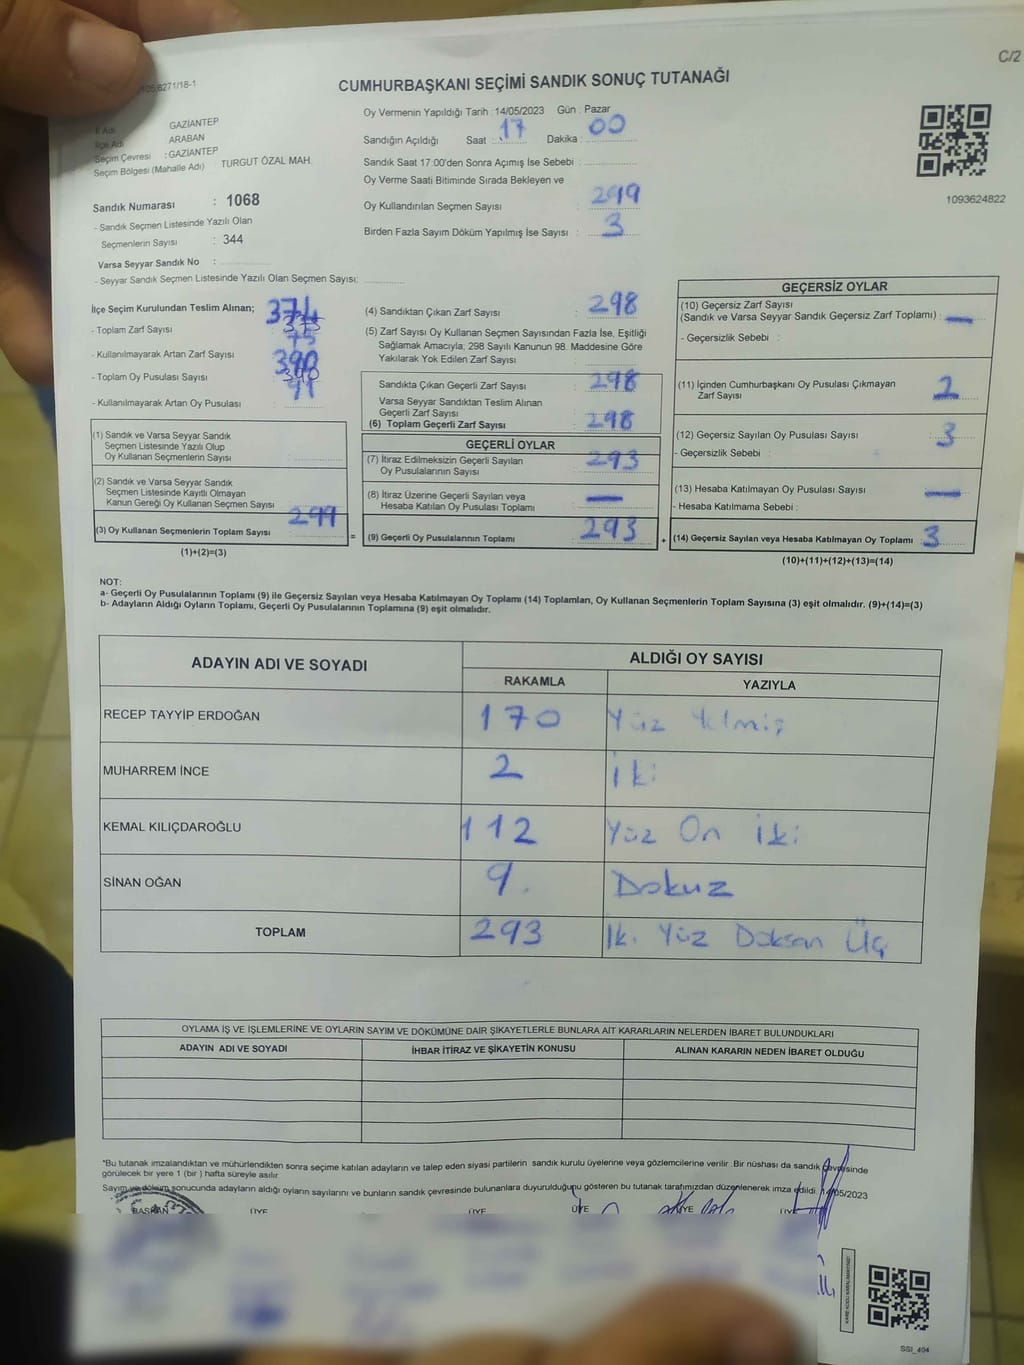 C/2
CUMHURBAŞKANI SEÇİMİ SANDIK SONUÇ TUTANAĞI
Oy Vermenin Yapıldığı Tarih : 14/05/2023 Gün : Pazar
İl Adı GAZİANTEP
İlçe Adı ARABAN
Seçim Çevresi : GAZİANTEP
Seçim Bölgesi (Mahalle Adı) TURGUT ÖZAL MAH.
Sandığın Açıldığı Saat : 17 Dakika : 00
Sandık Saat 17:00'den Sonra Açımış İse Sebebi :
Oy Verme Saati Bitiminde Sırada Bekleyen ve
Oy Kullandırılan Seçmen Sayısı : 299
Birden Fazla Sayım Döküm Yapılmış İse Sayısı : 3
1093624822
Sandık Numarası : 1068
- Sandık Seçmen Listesinde Yazılı Olan
Seçmenlerin Sayısı : 344
Varsa Seyyar Sandık No :
- Seyyar Sandık Seçmen Listesinde Yazılı Olan Seçmen Sayısı:
İlçe Seçim Kurulundan Teslim Alınan; 374
- Toplam Zarf Sayısı : 375
- Kullanılmayarak Artan Zarf Sayısı : 75
- Toplam Oy Pusulası Sayısı : 390
- Kullanılmayarak Artan Oy Pusulası : 91
(1) Sandık ve Varsa Seyyar Sandık
Seçmen Listesinde Yazılı Olup
Oy Kullanan Seçmenlerin Sayısı :
(2) Sandık ve Varsa Seyyar Sandık
Seçmen Listesinde Kayıtlı Olmayan
Kanun Gereği Oy Kullanan Seçmen Sayısı :
(3) Oy Kullanan Seçmenlerin Toplam Sayısı : 299
(1)+(2)=(3)
(4) Sandıktan Çıkan Zarf Sayısı : 298
(5) Zarf Sayısı Oy Kullanan Seçmen Sayısından Fazla İse, Eşitliği
Sağlamak Amacıyla; 298 Sayılı Kanunun 98. Maddesine Göre
Yakılarak Yok Edilen Zarf Sayısı :
Sandıkta Çıkan Geçerli Zarf Sayısı : 298
Varsa Seyyar Sandıktan Teslim Alınan
Geçerli Zarf Sayısı :
(6) Toplam Geçerli Zarf Sayısı : 298
GEÇERLİ OYLAR
(7) İtiraz Edilmeksizin Geçerli Sayılan
Oy Pusulalarının Sayısı : 293
(8) İtiraz Üzerine Geçerli Sayılan veya
Hesaba Katılan Oy Pusulası Toplamı : —
= (9) Geçerli Oy Pusulalarının Toplamı : 293
GEÇERSİZ OYLAR
(10) Geçersiz Zarf Sayısı
(Sandık ve Varsa Seyyar Sandık Geçersiz Zarf Toplamı) : —
- Geçersizlik Sebebi :
(11) İçinden Cumhurbaşkanı Oy Pusulası Çıkmayan
Zarf Sayısı : 2
(12) Geçersiz Sayılan Oy Pusulası Sayısı : 3
- Geçersizlik Sebebi :
(13) Hesaba Katılmayan Oy Pusulası Sayısı : —
- Hesaba Katılmama Sebebi :
+ (14) Geçersiz Sayılan veya Hesaba Katılmayan Oy Toplamı : 3
(10)+(11)+(12)+(13)=(14)
NOT:
a- Geçerli Oy Pusulalarının Toplamı (9) ile Geçersiz Sayılan veya Hesaba Katılmayan Oy Toplamı (14) Toplamları, Oy Kullanan Seçmenlerin Toplam Sayısına (3) eşit olmalıdır. (9)+(14)=(3)
b- Adayların Aldığı Oyların Toplamı, Geçerli Oy Pusulalarının Toplamına (9) eşit olmalıdır.
ADAYIN ADI VE SOYADI ALDIĞI OY SAYISI
RAKAMLA YAZIYLA
RECEP TAYYİP ERDOĞAN 170 Yüz Yetmiş
MUHARREM İNCE 2 İki
KEMAL KILIÇDAROĞLU 112 Yüz On İki
SİNAN OĞAN 9. Dokuz
TOPLAM 293 İki Yüz Doksan Üç
OYLAMA İŞ VE İŞLEMLERİNE VE OYLARIN SAYIM VE DÖKÜMÜNE DAİR ŞİKAYETLERLE BUNLARA AİT KARARLARIN NELERDEN İBARET BULUNDUKLARI
ADAYIN ADI VE SOYADI İHBAR İTİRAZ VE ŞİKAYETİN KONUSU ALINAN KARARIN NEDEN İBARET OLDUĞU
*Bu tutanak imzalandıktan ve mühürlendikten sonra seçime katılan adayların ve talep eden siyasi partilerin sandık kurulu üyelerine veya gözlemcilerine verilir .Bir nüshası da sandık çevresinde
görülecek bir yere 1 (bir ) hafta süreyle asılır
Sayım ve döküm sonucunda adayların aldığı oyların sayılarını ve bunların sandık çevresinde bulunanlara duyurulduğunu gösteren bu tutanak tarafımızdan düzenlenerek imza edildi. 14/05/2023
BAŞKAN ÜYE ÜYE ÜYE ÜYE ÜYE
SSI_404